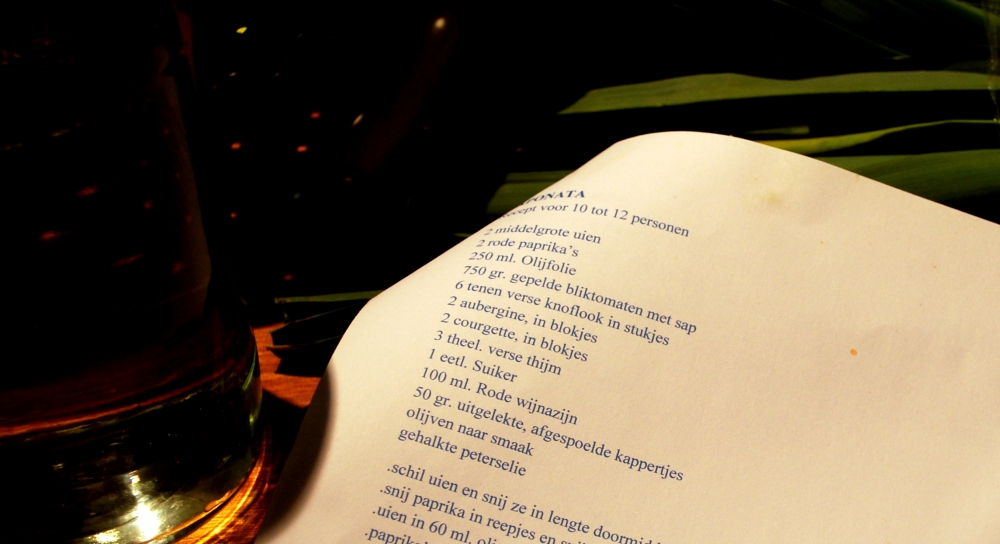 PONATA
recept voor 10 tot 12 personen
2 middelgrote uien
2 rode paprika's
250 ml. Olijfolie
750 gr. gepelde bliktomaten met sap
6 tenen verse knoflook in stukjes
2 aubergine, in blokjes
2 courgette, in blokjes
3 theel. verse thijm
1 eetl. Suiker
100 ml. Rode wijnazijn
50 gr. uitgelekte, afgespoelde kappertjes
olijven naar smaak
gehalkte peterselie
.schil uien en snij ze in lengte doormid
.snij paprika in reepjes en
.uien in 60 ml.